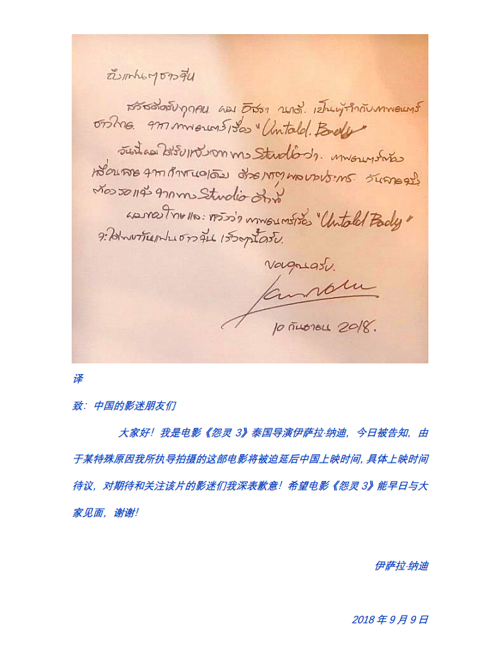 ถึงแฟนๆชาวจีน
สวัสดีครับทุกคน ผม อิสรา นาดี เป็นผู้กำกับภาพยนตร์
ชาวไทย จากภาพยนตร์เรื่อง "Untold. Body"
วันนี้ผมได้รับแจ้งจากทาง Studio ว่า ภาพยนตร์ต้อง
เลื่อนฉาย จากกำหนดเดิม ด้วยเหตุผลบางประการ วันฉายจริง
ต้องรอแจ้งจากทาง Studio อีกที
ผมขอโทษและหวังว่า ภาพยนตร์เรื่อง "Untold Body"
จะได้พบกับแฟนชาวจีน เร็วๆนี้ครับ.
ขอบคุณครับ.
10 กันยายน 2018.
译
致：中国的影迷朋友们
大家好！我是电影《怨灵 3》泰国导演伊萨拉·纳迪，今日被告知，由
于某特殊原因我所执导拍摄的这部电影将被迫延后中国上映时间，具体上映时间
待议，对期待和关注该片的影迷们我深表歉意！希望电影《怨灵 3》能早日与大
家见面，谢谢！
伊萨拉·纳迪
2018 年 9 月 9 日